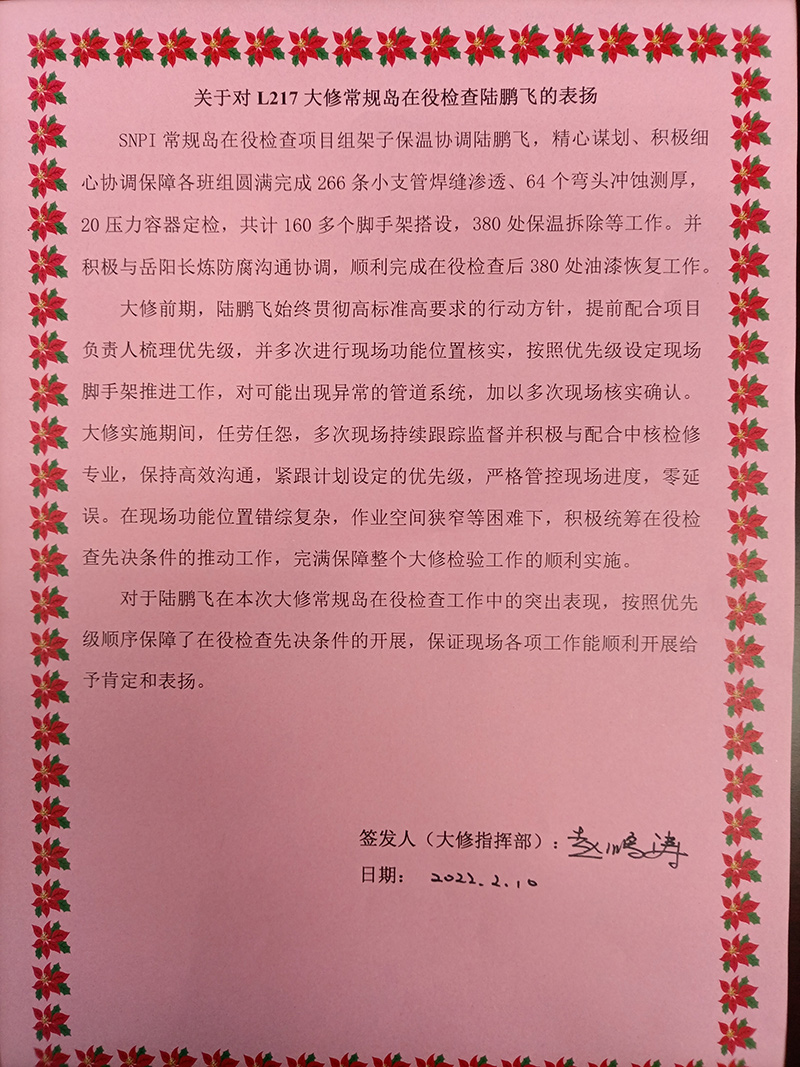 关于对 L217 大修常规岛在役检查陆鹏飞的表扬
SNPI 常规岛在役检查项目组架子保温协调陆鹏飞，精心谋划、积极细
心协调保障各班组圆满完成 266 条小支管焊缝渗透、64 个弯头冲蚀测厚，
20 压力容器定检，共计 160 多个脚手架搭设，380 处保温拆除等工作。并
积极与岳阳长炼防腐沟通协调，顺利完成在役检查后 380 处油漆恢复工作。
大修前期，陆鹏飞始终贯彻高标准高要求的行动方针，提前配合项目
负责人梳理优先级，并多次进行现场功能位置核实，按照优先级设定现场
脚手架推进工作，对可能出现异常的管道系统，加以多次现场核实确认。
大修实施期间，任劳任怨，多次现场持续跟踪监督并积极与配合中核检修
专业，保持高效沟通，紧跟计划设定的优先级，严格管控现场进度，零延
误。在现场功能位置错综复杂，作业空间狭窄等困难下，积极统筹在役检
查先决条件的推动工作，完满保障整个大修检验工作的顺利实施。
对于陆鹏飞在本次大修常规岛在役检查工作中的突出表现，按照优先
级顺序保障了在役检查先决条件的开展，保证现场各项工作能顺利开展给
予肯定和表扬。
签发人（大修指挥部）：赵鹏涛
日期： 2022.2.10